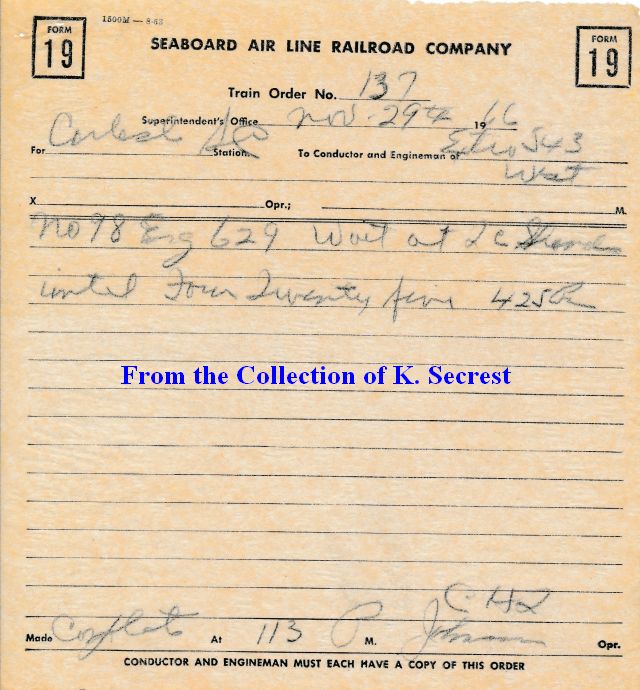 1500M — 8-63
FORM 19
FORM 19
SEABOARD AIR LINE RAILROAD COMPANY
Train Order No. 137
Superintendent's Office Nov. 29th 1966
For Station. To Conductor and Engineman of Extra 543
West
X Opr.; M.
No 98 Eng 629 Wait at
until Four Twenty five 425 Pm
From the Collection of K. Secrest
Made Complete At 113 P M. Johnson Opr.
CONDUCTOR AND ENGINEMAN MUST EACH HAVE A COPY OF THIS ORDER